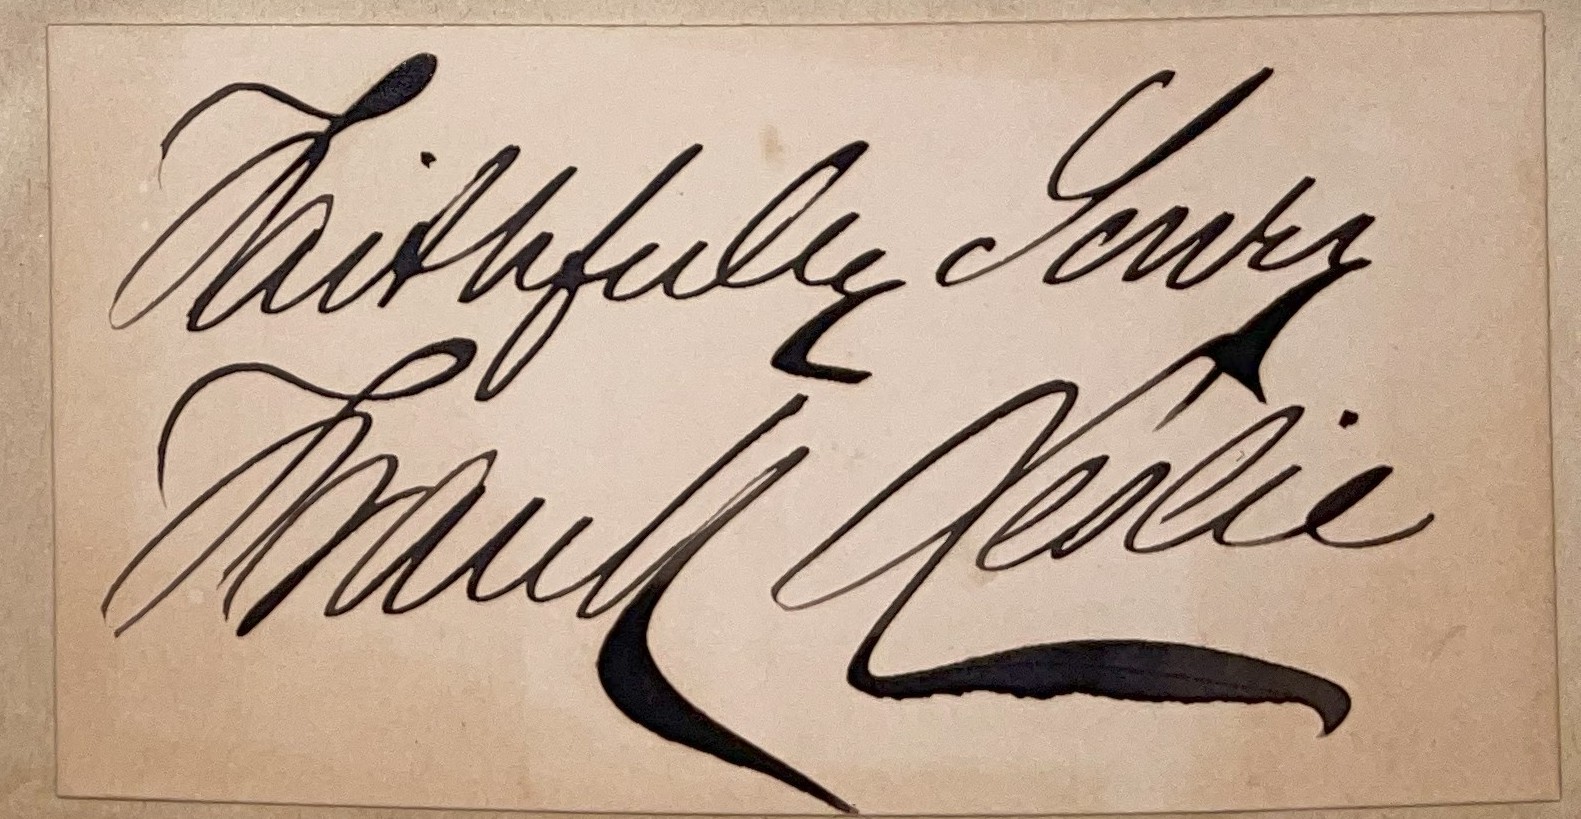 Faithfully Yours
Frank Leslie